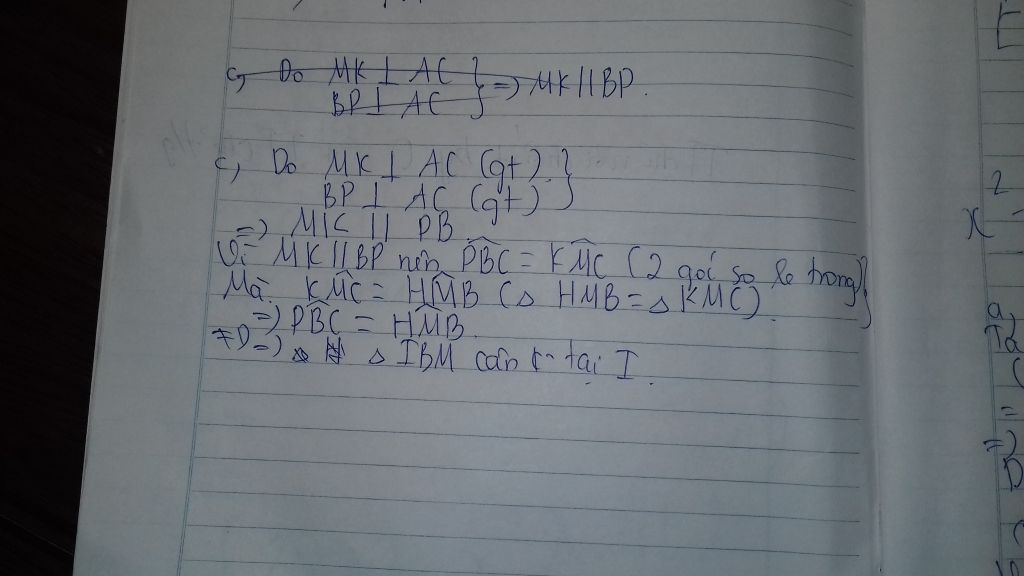 c, Do MK ⊥ AC } => MK // BP.
BP ⊥ AC
c, Do MK ⊥ AC (gt). }
BP ⊥ AC (gt)
=> MK // PB
Vì MK // BP nên \widehat{PBC} = \widehat{KMC} (2 gói so le trong) }
Mà \widehat{KMC} = \widehat{HMB} (△ HMB = △ KMC).
=> \widehat{PBC} = \widehat{HMB}.
=> △ IBM cân tại I.
2
x
a,
=
=>
D